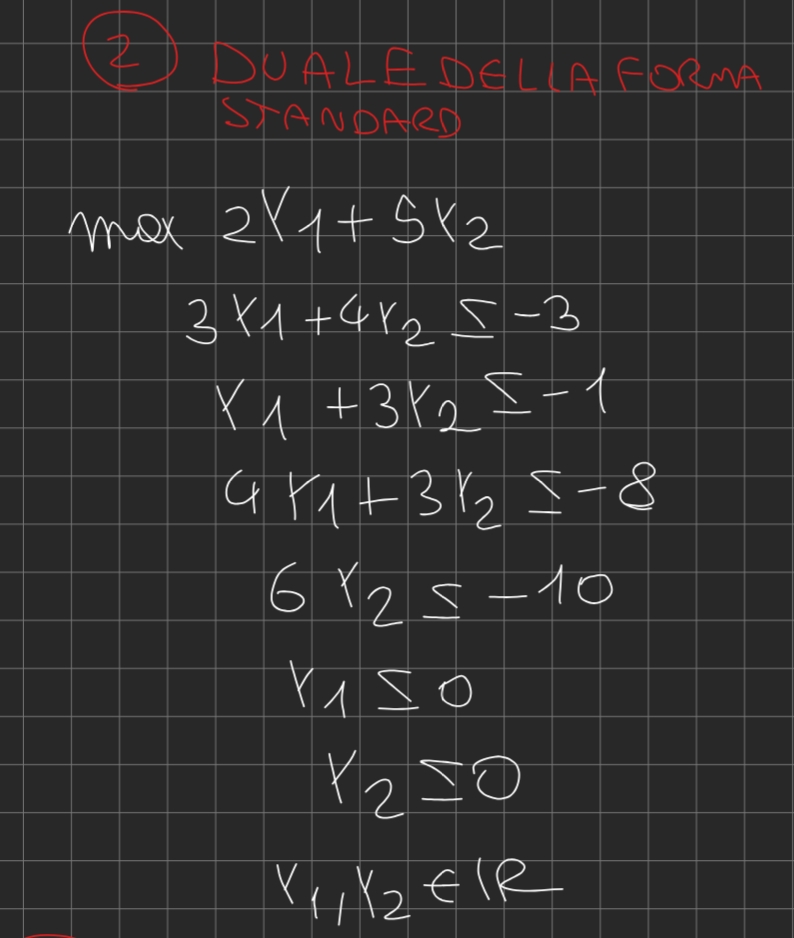 2 DUALE DELLA FORMA
STANDARD
max 2Y1 + 5Y2
3Y1 + 4Y2 ≤ -3
Y1 + 3Y2 ≤ -1
4Y1 + 3Y2 ≤ -8
6Y2 ≤ -10
Y1 ≤ 0
Y2 ≤ 0
Y1, Y2 ∈ IR